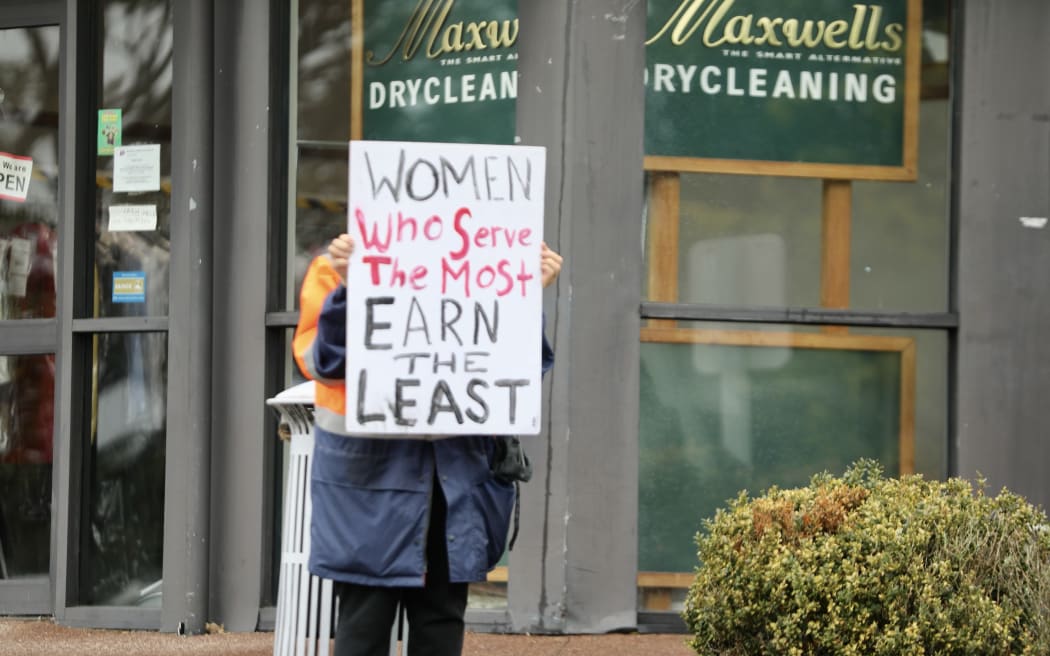 Maxw
THE SMART AL
DRYCLEAN
Maxwells
THE SMART ALTERNATIVE
RYCLEANING
We are
PEN
WOMEN
Who Serve
The Most
EARN
THE
LEAST